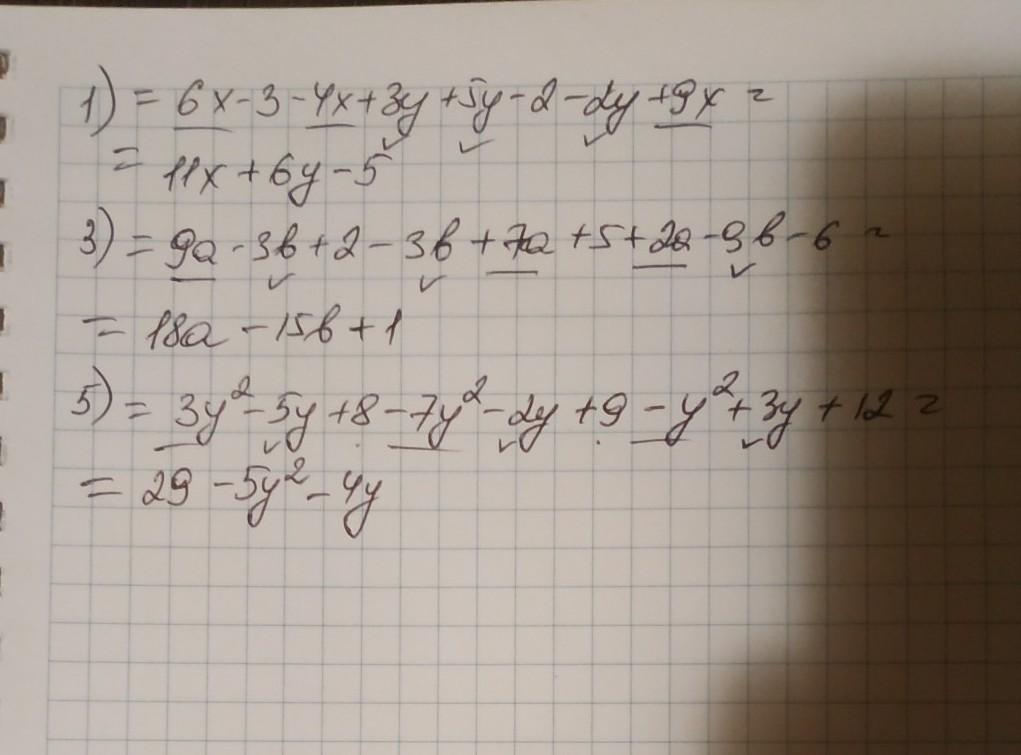 1) = 6x - 3 - 4x + 3y + 5y - 2 - 2y + 9x =
= 11x + 6y - 5
3) = 9a - 3b + 2 - 3b + 7a + 5 + 2a - 9b - 6 =
= 18a - 15b + 1
5) = 3y² - 5y + 8 - 7y² - 2y + 9 - y² + 3y + 12 =
= 29 - 5y² - 4y